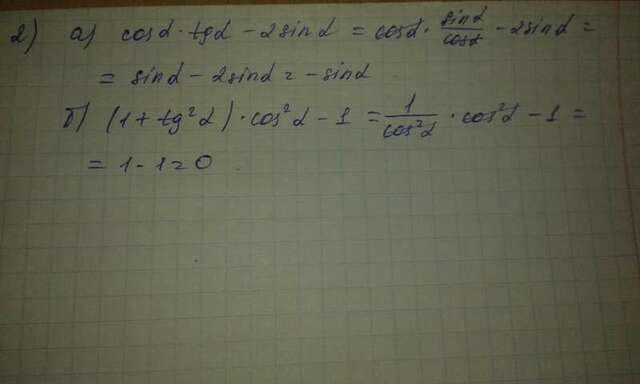 2) а) cosα · tgα - 2 sin α = cosα · sinα/cosα - 2 sinα =
= sinα - 2sinα = - sinα
б) (1 + tg²α) · cos²α - 1 = 1/cos²α · cos²α - 1 =
= 1 - 1 = 0